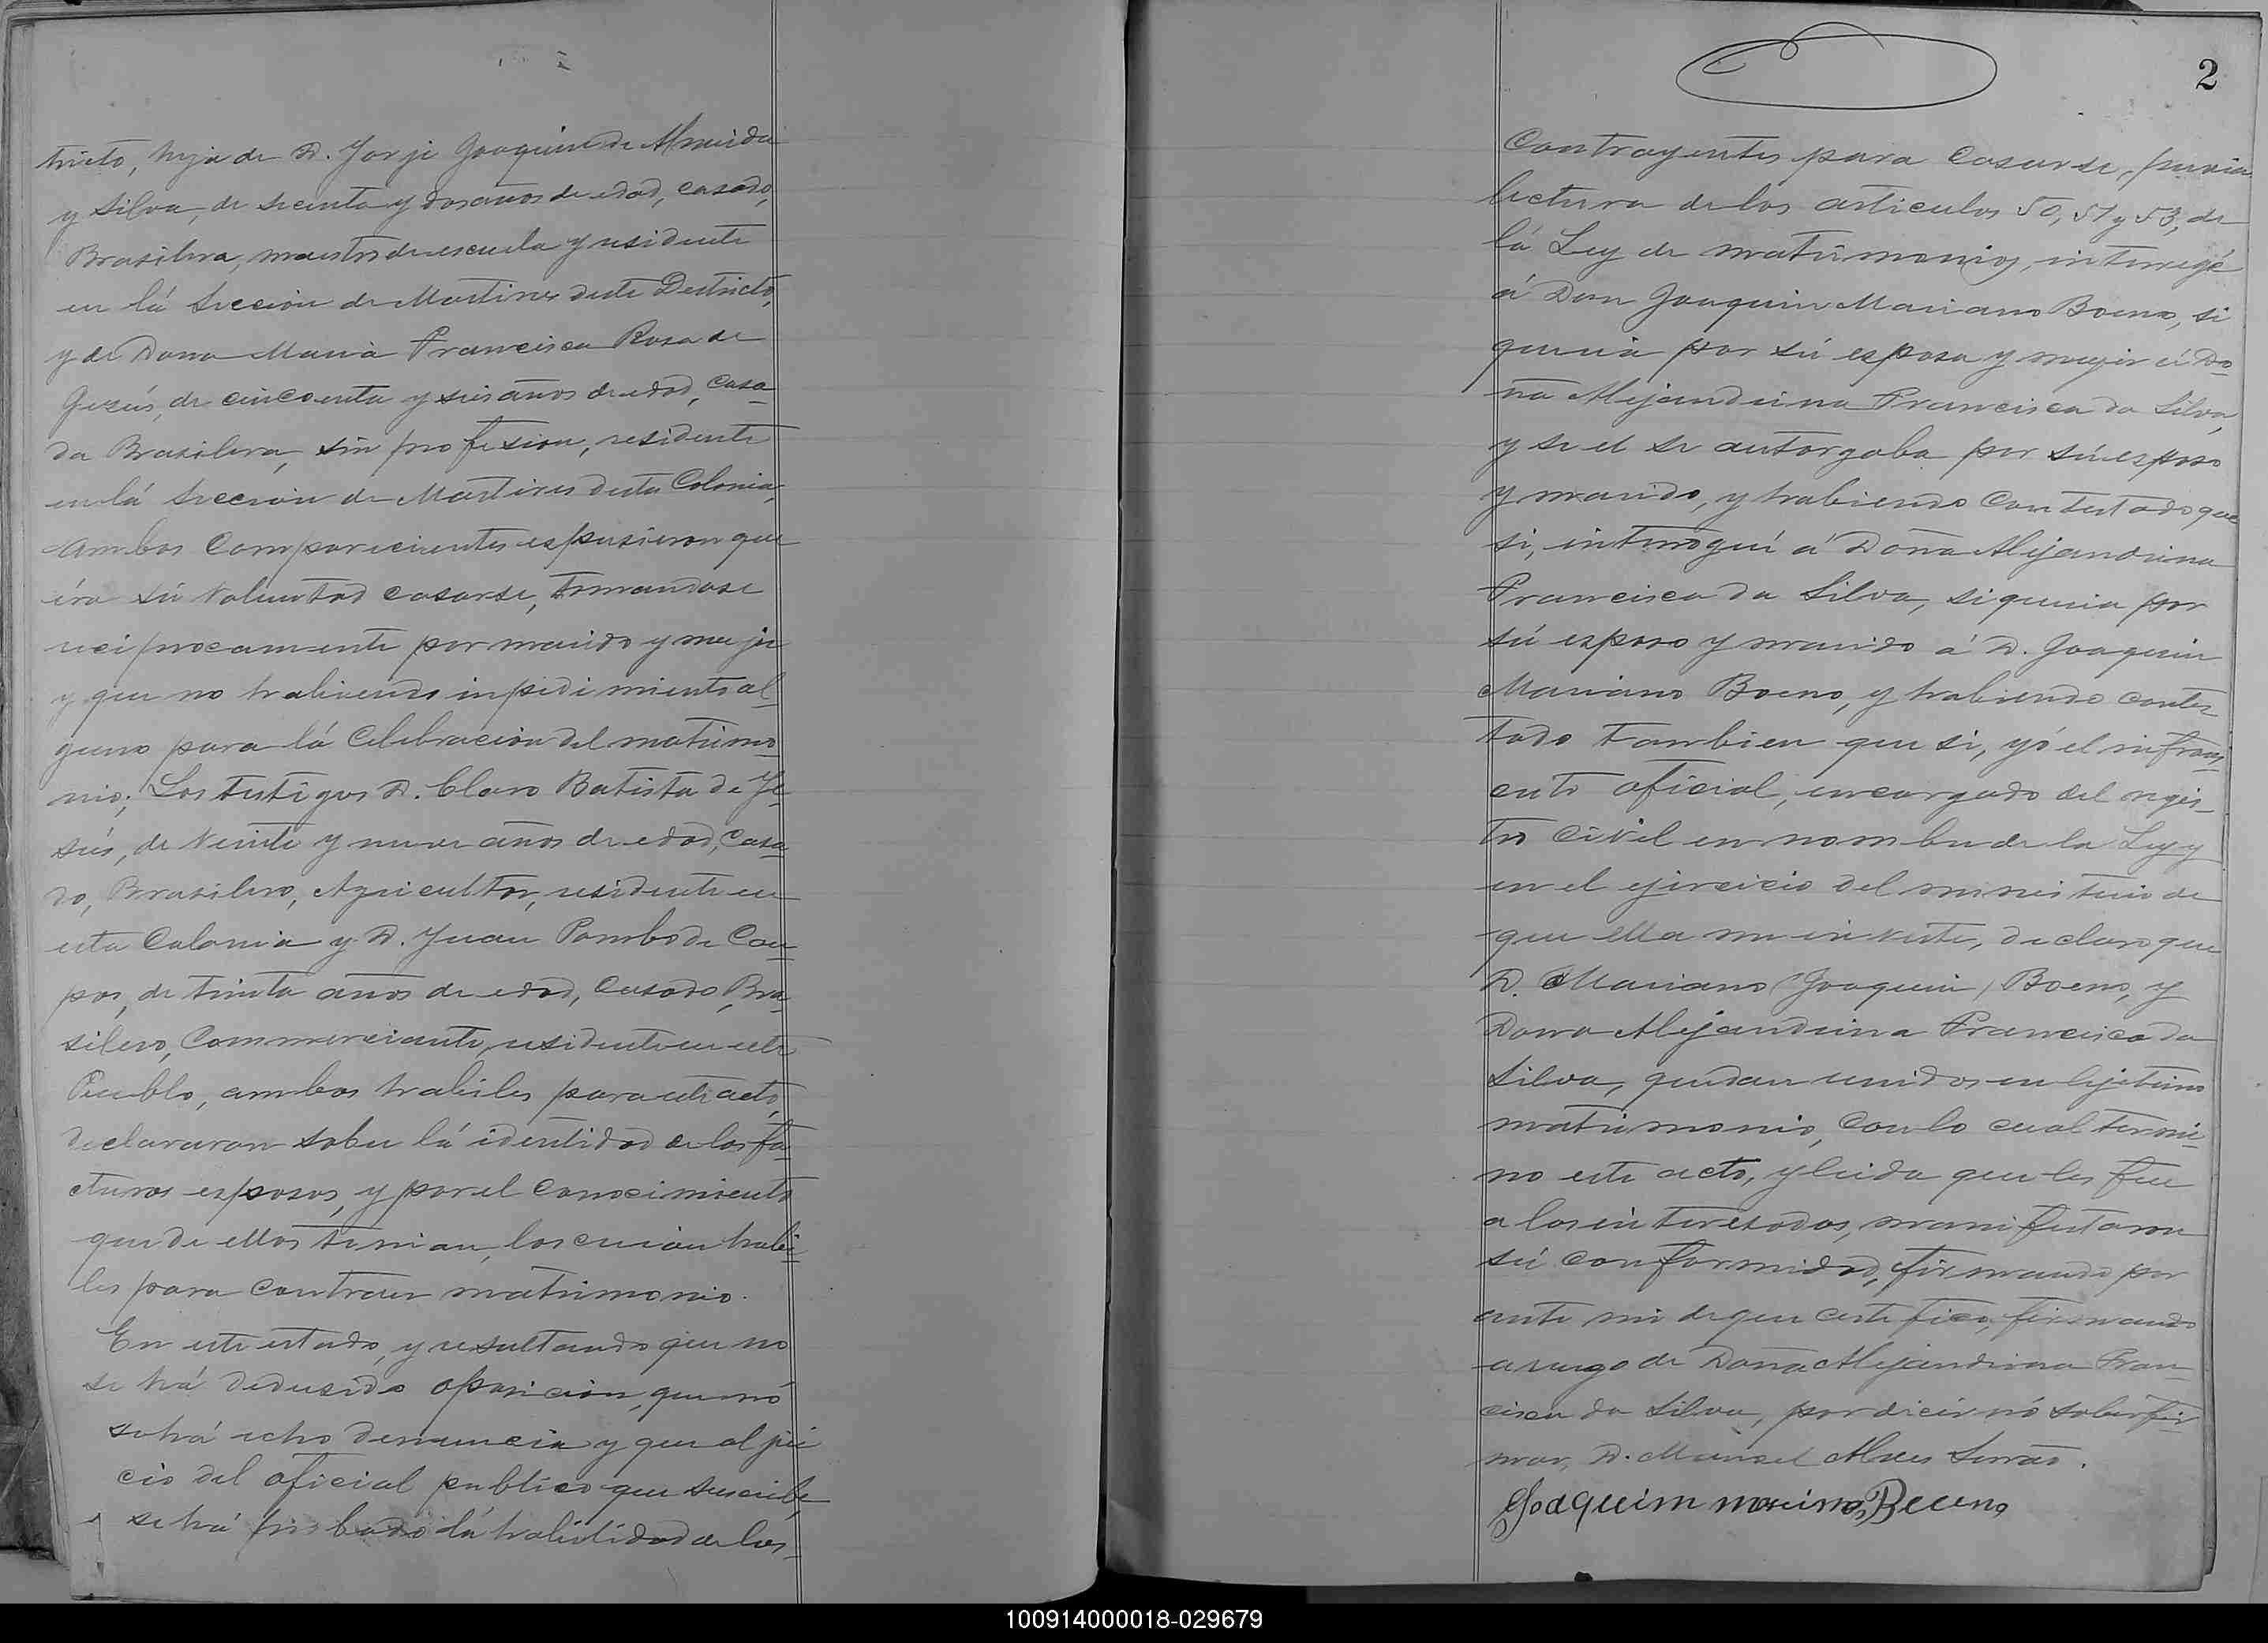 tricto, hija de D. Jorje Joaquin de Almeida
y Silva, de secenta y dos años de edad, casado,
Brasilera, maestro de escuela y residente
en lá Seccion de Martires deste Destricto,
y de Dona Maria Francisca Rosa de
Gezús, de cincoenta y seis años de edad, casa-
da Brasilera, sin profesion, residente
en lá Seccion de Martires desta Colonia,
Ambos Comparecientes espusieron que
éra sú Voluntad casarse, tomandose
reciprocamente por marido y mujer
y que no habiendo inpedimiento al-
guno para lá Celebracion del matrimo-
nio; Los testigos D. Claro Batista de Je-
sús, de Veinte y nueve años de edad, Casa-
do, Brasilero, Agricultor, residente en
esta Colonia y D. Juan Pombo de Cam-
pos, de trinta años de edad, Casado, Bra-
silero, Commerciante, residente en este
Pueblo, ambos habiles para este acto,
declararon sobre lá identidad de los fu-
cturos esposos, y por el Conocimiento
que de ellos tenian, los creian habi-
les para contraer matrimonio.
En este estado, y resultando que no
se há dedusido oposicion, que nó
se há echo denuncia y que al jui
cio del oficial publico que suscribe,
se há probado lá habilidad de los
2
Contrayentes para Casarse, previa
lectura de los articulos 50, 51 y 53, de
lá Ley de matrimonios, interregé
á Don Joaquin Mariano Boeno, si
queria por sú esposa y mujer á Do-
ña Alejandrina Francisca da Silva,
y se el se autorgaba por sú esposo
y marido, y habiendo Contestado que
si, interroguí á Doña Alejandrina
Francisca da Silva, si queria por
sú esposo y marido á D. Joaquin
Mariano Boeno, y habiendo contes
tado tambien que si, yó el infras-
crito oficial, encargado del regis-
tro Civil en nombre de la Ley y
en el ejercicio del ministerio de
que ella me inviste, declaro que
D. Mariano (Joaquin) Boeno, y
Dona Alejandrina Francisca da
Silva, quedan unidos en lejitimo
matrimonio, con lo cual termi-
no este acto, y leida que les fue
a los interesados, manifestaron
sú conformidad, firmando por
ante mi de que certifico, firmando
a ruego de Doña Alejandrina Fran-
cisca da Silva, por dicir nó saber fir-
mar, D. Manoel Alves Serrão.
Joaquim Bueno
100914000018-029679